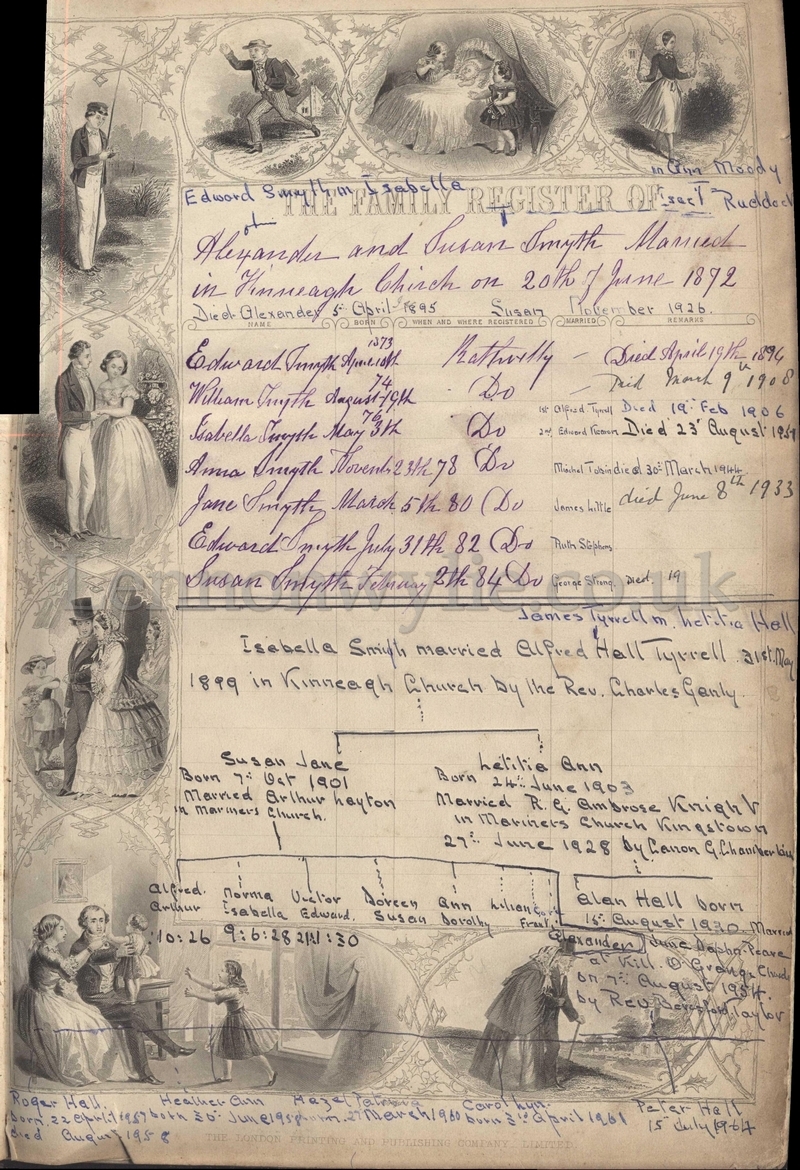 Edward Smyth m Isabella
Ann Moody
Ruddock
THE FAMILY REGISTER OF
Alexander and Susan Smyth Married
in Kinneagh Church on 20th of June 1872
Died Alexander 5 April 1895 Susan November 1926.
NAME BORN WHEN AND WHERE REGISTERED MARRIED REMARKS
1873
Edward Smyth April 10th Rathvilly - Died April 19th 1894
74
William Smyth August 19th Do - Died March 9th 1908
76
1st Alfred Tyrrell Died 19th Feb 1906
Isabella Smyth May 3th Do 2nd Edward Died 23rd August
Anna Smyth Novemb 23th 78 Do Michel Tobin died 30th March 1944
Jane Smyth March 5th 80 Do James Little died June 8th 1933
Edward Smyth July 31th 82 Do Ruth Stephens
Susan Smyth February 2th 84 Do George Strong. Died. 19
Lennonwylie.co.uk
James Tyrrell m. Letitia Hall
Isabella Smyth married Alfred Hall Tyrrell. 31st. May
1899 in Kinneagh Church by the Rev. Charles Ganly.
Susan Jane
Born 7th Oct 1901
Married Arthur Layton
in Mariners Church.
Letitia Ann
Born 24th June 1903
Married R. G. Ambrose Knight
in Mariners Church Kingstown
27th June 1928 by Canon G. Chamberlain
Alfred. Norma Victor Doreen Ann Lilian
Arthur Isabella Edward. Susan Dorothy
10:26 9:6:28
Alan Hall born
15th August 1930 Married
Alexander June Daphn. Peare
at Kill. O Grange Church
on 7th August 1954.
by Rev. Beresford. Taylor
Roger Hall. Heather Ann Hazel Patricia Carolhyn. Peter Hall
born. 22 April 1957 born 30th June 1958 born. 27 March 1960 born 3rd April 1961 15 July 1964
died August 1958
THE LONDON PRINTING AND PUBLISHING COMPANY, LIMITED